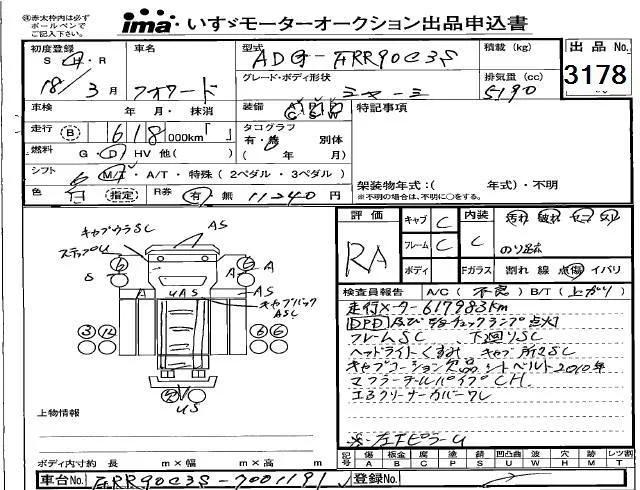 ※赤太枠内は必ず
ボールペンで
ご記入下さい。
ima いすゞモーターオークション出品申込書
初度登録 S・H・R 18年 3月
車名 フォワード
型式 ADG-FRR90C3S
積載(kg)
出品No. 3178
グレード・ボディ形状
排気量(cc) 5190
車検 年 月・抹消
装備 A P P C S W
特記事項
走行 B 618 000km「 」
タコグラフ 有・無 別体
燃料 G・D HV 他( )
( 年 月)
シフト 6 M/T・A/T・特殊(2ペダル・3ペダル)
架装物年式:( 年式)・不明
※不明の場合は、不明に○をする。
色 白 指定 R券 有 無 11240円
評価 RA
キャブ C
フレーム C
ボディ
内装 C
汚れ 破れ コゲ
Fガラス 割れ 線 点傷 イバリ
検査員報告 A/C(不良)B/T(上がり)
走行メーター617983km
DPD及びチェックランプ点灯
フレームSC 下回りSC
ヘッドライトくすみ キャブ所々SC
キャブコーション欠品 シートベルト2010年
マフラーテールパイプCH
エアクリーナーカバーワレ
※左FピラーU
キャブウラSC
ステップU
AS
6 6 A
S A
A UAS AS
キャブバック
ASC
3 12 6 6
US
上物情報
ボディ内寸約 長 m×幅 m×高 m
記号 傷 A 板金 B 腐 C 塗 P 錆 S 凹凸曲 U 波 W 穴 H 所 M レツ割 T
車台No. FRR90C3S-7001191
登録No.